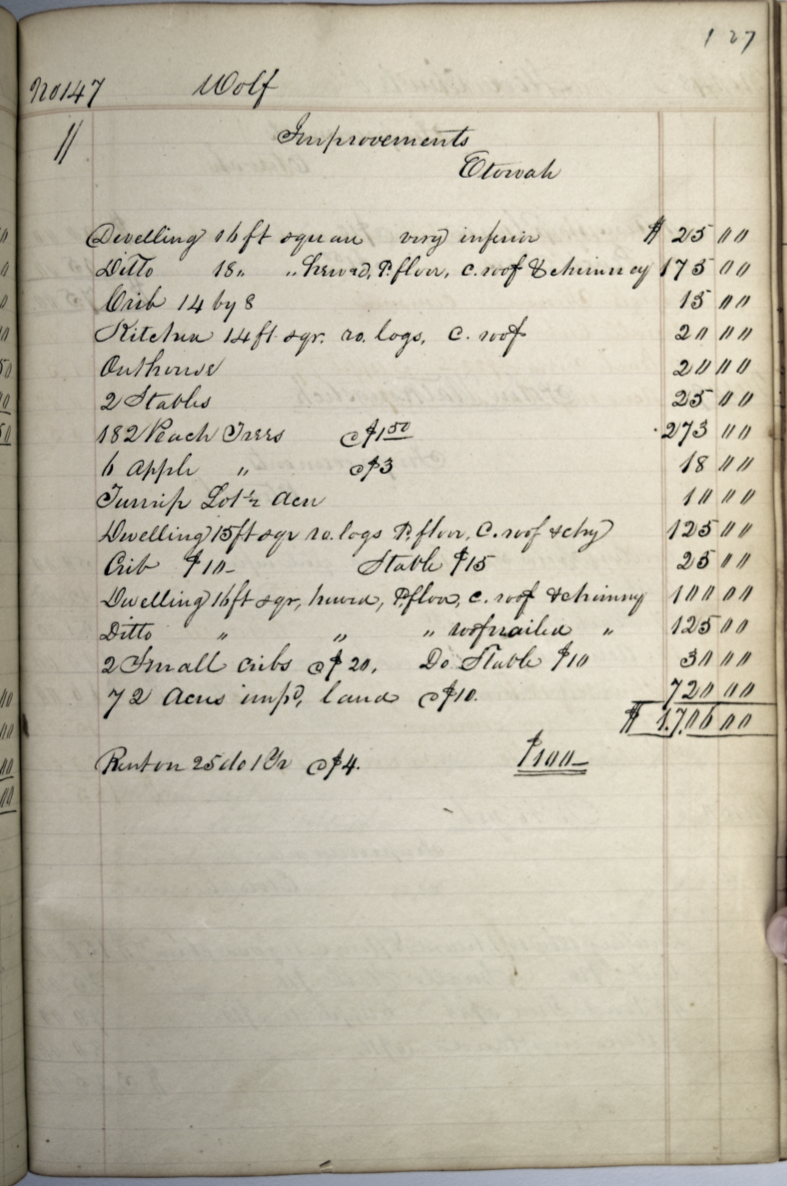 127
No 147 Wolf
11 Improvements
Etowah
Dwelling 16 ft square very inferior $ 25 00
Ditto 18 " " hewed, P. floor, c. roof & chimney 175 00
Crib 14 by 8 15 00
Kitchen 14 ft sqr. ro. logs, C. roof 20 00
Outhouse 20 00
2 Stables 25 00
182 Peach Trees @ $1 50 273 00
6 Apple " @ $3 18 00
Turnip Lot ½ Acre 10 00
Dwelling 15 ft sqr ro. logs P. floor, C. roof & chy 125 00
Crib $10 - Stable $15 25 00
Dwelling 16 ft sqr, hewed, P. floor, c. roof & chimney 100 00
Ditto " " " roof nailed " 125 00
2 Small cribs @ $20, Do Stable $10 30 00
72 Acres imp'd, land @ $10. 720 00
$ 1,706 00
Rent on 25 do 1 Yr @ $4. $100 -